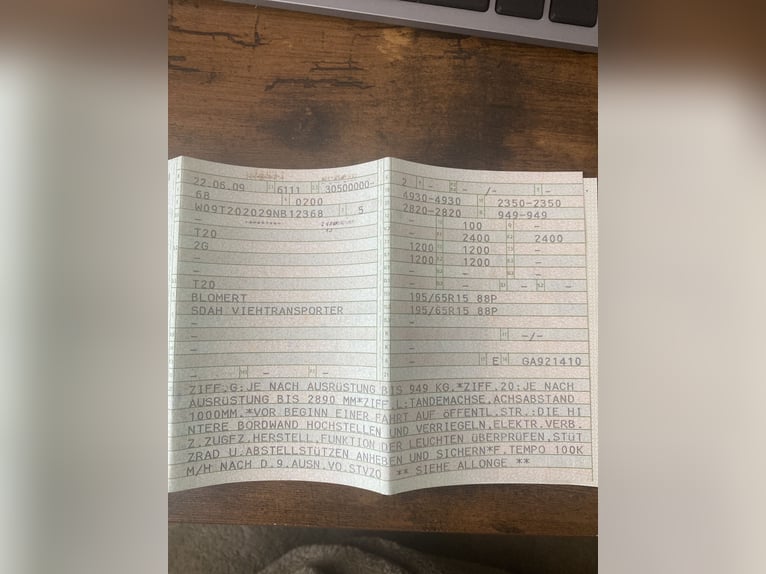 22.06.09 6111 30500000-
68 0200
W09T202029NB12368 5
-
T20
2G
-
-
T20
BLOMERT
SDAH VIEHTRANSPORTER
-
-
-
- - -
2 - - -/- -
4930-4930 2350-2350
2820-2820 949-949
- 100 -
- 2400 2400
1200 1200 -
1200 1200 -
- - -
- - - -
195/65R15 88P
195/65R15 88P
-
- -/-
- E GA921410
ZIFF.G:JE NACH AUSRÜSTUNG BIS 949 KG.*ZIFF.20:JE NACH
AUSRÜSTUNG BIS 2890 MM*ZIFF.L:TANDEMACHSE,ACHSABSTAND
1000MM.*VOR BEGINN EINER FAHRT AUF ÖFFENTL.STR.:DIE HI
NTERE BORDWAND HOCHSTELLEN UND VERRIEGELN,ELEKTR.VERB.
Z.ZUGFZ.HERSTELL.FUNKTION DER LEUCHTEN ÜBERPRÜFEN,STÜT
ZRAD U.ABSTELLSTÜTZEN ANHEBEN UND SICHERN*F.TEMPO 100K
M/H NACH D.9.AUSN.VO.STVZO ** SIEHE ALLONGE **